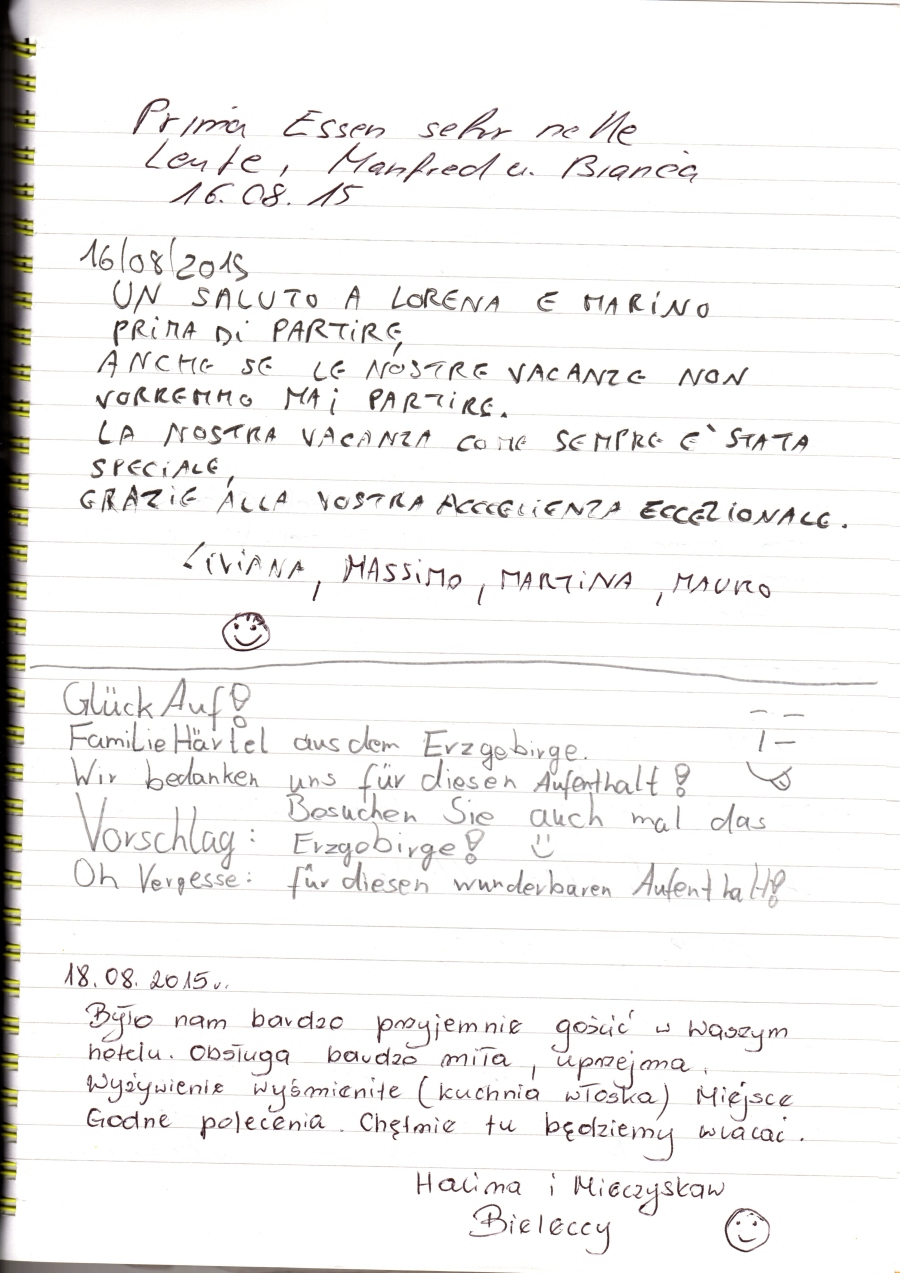 Prima Essen sehr nette
Leute, Manfred u. Bianca
16.08.15
16/08/2015
UN SALUTO A LORENA E MARINO
PRIMA DI PARTIRE,
ANCHE SE LE NOSTRE VACANZE NON
VORREMMO MAI PARTIRE.
LA NOSTRA VACANZA COME SEMPRE E` STATA
SPECIALE,
GRAZIE ALLA VOSTRA ECCEZIONALE.
LIVIANA, MASSIMO, MARTINA, MAURO
Glück Auf!
Familie Härtel aus dem Erzgebirge.
Wir bedanken uns für diesen Aufenthalt!
Besuchen Sie auch mal das
Vorschlag: Erzgebirge!
Oh Vergesse: für diesen wunderbaren Aufenthalt!
18.08.2015r.
Było nam bardzo przyjemnie gościć w waszym
hotelu. Obsługa bardzo miła, uprzejma.
Wyżywienie wyśmienite (kuchnia włoska) Miejsce
Godne polecenia. Chętnie tu będziemy wracać.
Halina i Mieczysław
Bieleccy